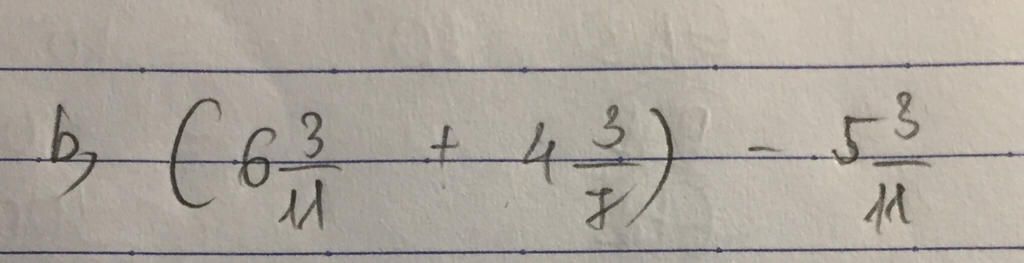 b, (6 3/11 + 4 3/7) - 5 3/11